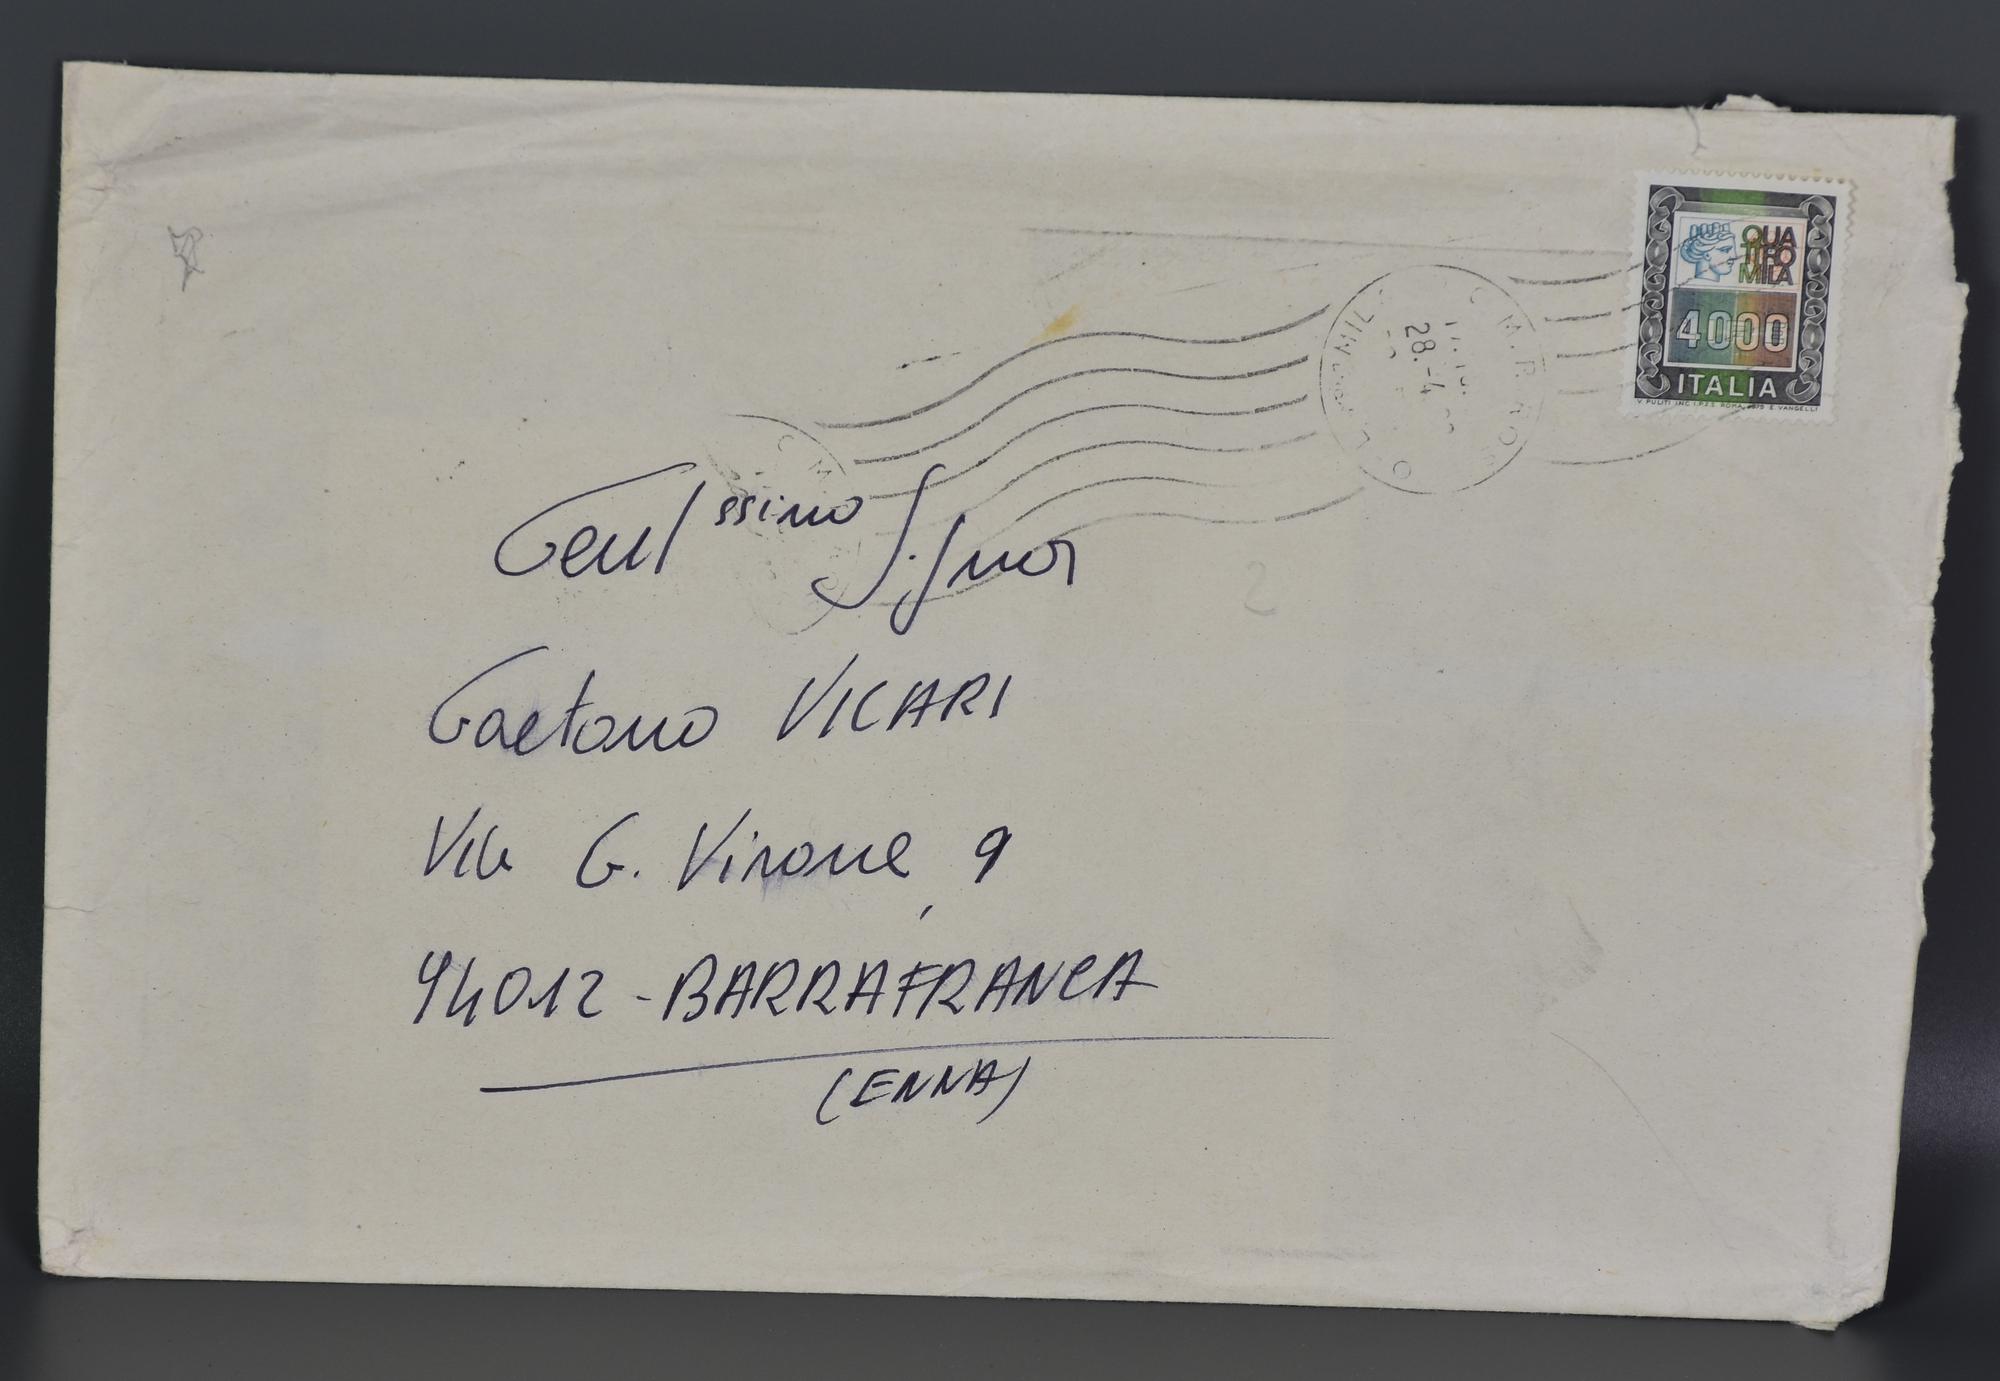 QUATTROMILA
4000
ITALIA
V. PULITI INC. I.P.Z.S. ROMA, 1979 E. VANGELLI
C.M.P. ROSERIO
28.-4
Gent.ssimo Signor
Gaetano VICARI
Via G. Virone 9
94012 - BARRAFRANCA
(ENNA)
2